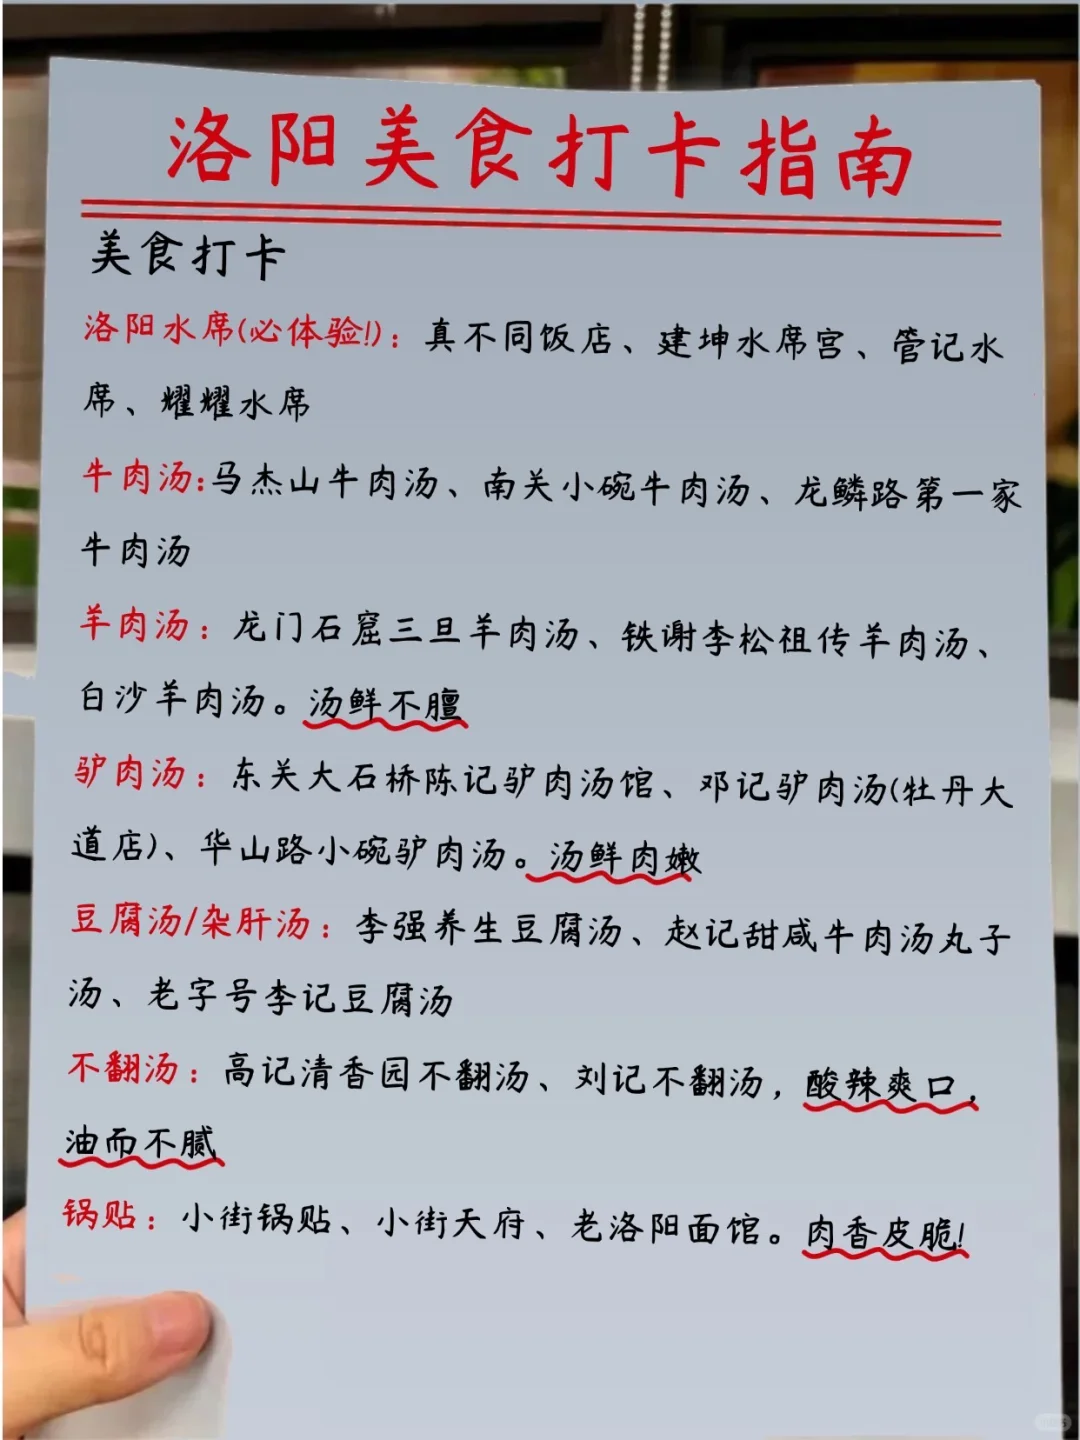 洛阳美食打卡指南
美食打卡
洛阳水席(必体验!)：真不同饭店、建坤水席宫、管记水
席、耀耀水席
牛肉汤:马杰山牛肉汤、南关小碗牛肉汤、龙鳞路第一家
牛肉汤
羊肉汤：龙门石窟三旦羊肉汤、铁谢李松祖传羊肉汤、
白沙羊肉汤。汤鲜不膻
驴肉汤：东关大石桥陈记驴肉汤馆、邓记驴肉汤(牡丹大
道店)、华山路小碗驴肉汤。汤鲜肉嫩
豆腐汤/杂肝汤：李强养生豆腐汤、赵记甜咸牛肉汤丸子
汤、老字号李记豆腐汤
不翻汤：高记清香园不翻汤、刘记不翻汤，酸辣爽口，
油而不腻
锅贴：小街锅贴、小街天府、老洛阳面馆。肉香皮脆!